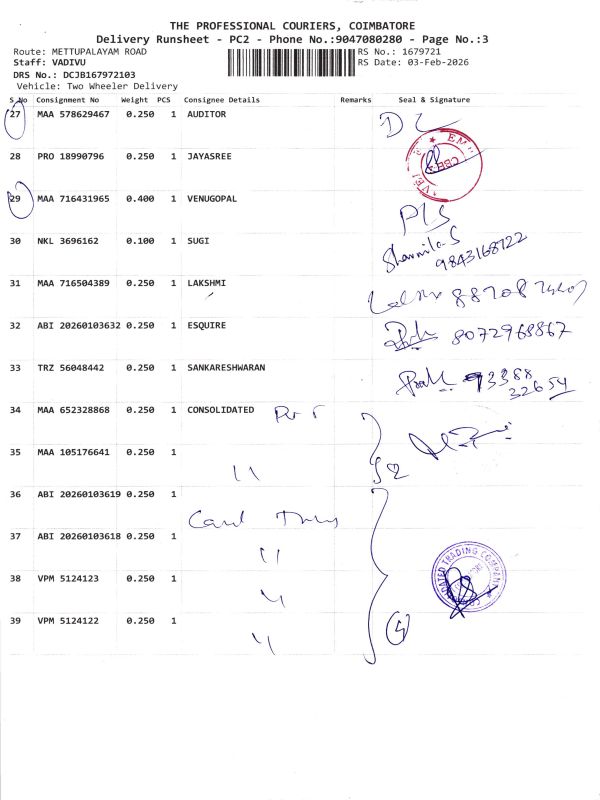 THE PROFESSIONAL COURIERS, COIMBATORE
Delivery Runsheet - PC2 - Phone No.:9047080280 - Page No.:3
Route: METTUPALAYAM ROAD RS No.: 1679721
Staff: VADIVU RS Date: 03-Feb-2026
DRS No.: DCJB167972103
Vehicle: Two Wheeler Delivery
S.No Consignment No Weight PCS Consignee Details Remarks Seal & Signature
27 MAA 578629467 0.250 1 AUDITOR
28 PRO 18990796 0.250 1 JAYASREE
29 MAA 716431965 0.400 1 VENUGOPAL
30 NKL 3696162 0.100 1 SUGI Sharmila.S
9843168722
31 MAA 716504389 0.250 1 LAKSHMI
32 ABI 20260103632 0.250 1 ESQUIRE 8072969867
33 TRZ 56048442 0.250 1 SANKARESHWARAN 93388
32654
34 MAA 652328868 0.250 1 CONSOLIDATED
35 MAA 105176641 0.250 1 2
36 ABI 20260103619 0.250 1
37 ABI 20260103618 0.250 1
38 VPM 5124123 0.250 1 DATED TRADING COMPANY
39 VPM 5124122 0.250 1